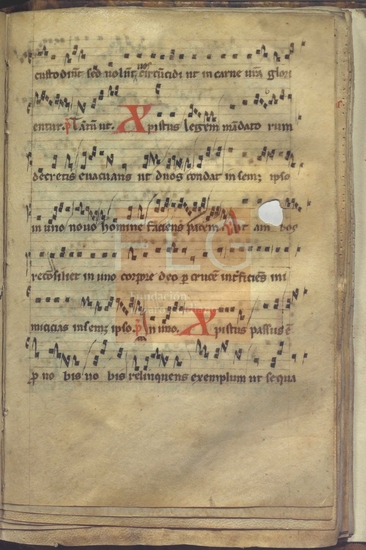 custodiunt sed volunt vos circumcidi ut in carne vestra glori
entur. p Latum ut. Xpistus legem mandato rum
decretis evacuans ut duos condat in semz ipso
in uno novo homine faciens pacem Et am bos
reconsiliet in uno corpore deo p crucem interficiens ini
micicias in semz ipso. p In uno. Xpistus passus e
p no bis vo bis relinquens exemplum ut sequa
FLG
fundación